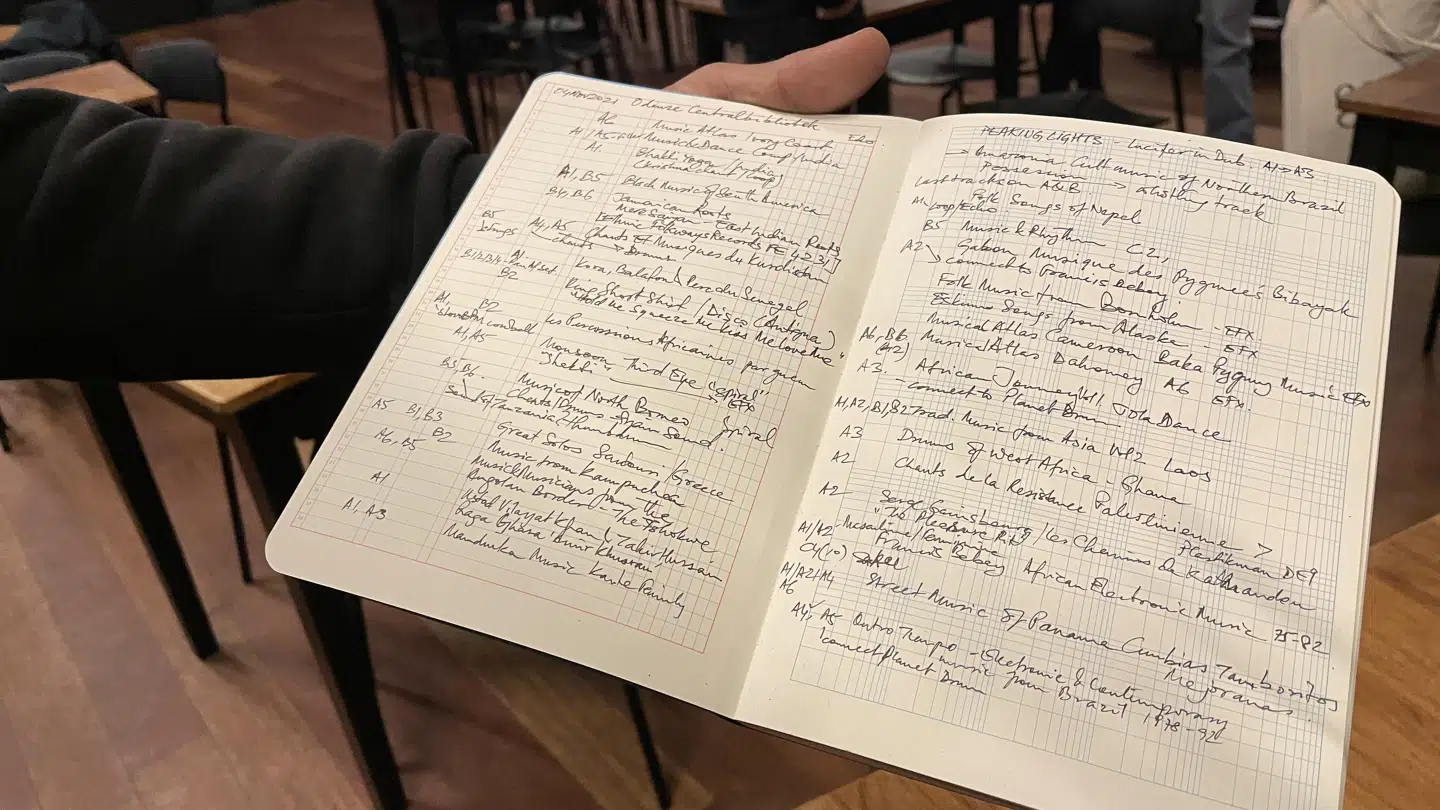 04 Nov 2021 Odense Centralbibliotek
A6 Music Atlas Ivory Coast
A1/A5 Music & Dance Comp/India
A1 Bhakti Yoga/India
A1, B5 Black Music of South America
B4, B6 Jamaican Roots
More East Indian Roots
B5 Ethnic Folkways Records FE 4
A4, A5 Chants Et Musiques du Kurdistan
chants Drums
B2 Kora, Balafon & Perc du Senegal
King Short Shirt / Disco (Antigua)
"Hold Me Squeeze Me Kiss Me Love Me"
A1, B2 Les Percussions Africaines par
A1, A5 Monsoon Third Eye "Spiral"
EFX
Shakti Spiral
B5, B6 Music of North Borneo
Chants/Drums
Tanzania
A5 B1, B3 Great Solos Greece
A6, B5 B2 Music from Kampuchea
Music & Musicians from the
Angolan Border - The Tshokwe
A1 Ustad Vilayat Khan & Zakir Hussain
A1, A3 Raga Amir Khusrau
Mandinka Music Family
PEAKING LIGHTS - Lucifer in Dub: A1 → A3
→ Amazonia Cult music of Northern Brazil
possession → track
Last track on A & B Folk Songs of Nepal
A1 Loop/Echo
B5 Music & Rhythm C2,
A2 Gabon Musique des Pygmées Bibayak
connects Francis Bebey.
Folk Music from Bornholm - EFX
Eskimo Songs from Alaska - EFX
Musical Atlas Cameroon Baka Pygmy Music EFX
A6, B6 Musical Atlas Dahomey A6 EFX.
A3. African Journey Vol 1 Dance
- connect to Planet Drum
A1, A2, B1, B2 Trad. Music from Asia No 2 Laos
A3 Drums of West Africa - Ghana
A2 Chants de la Resistance Palestinienne
A2 Serge Gainsbourg / Les Chemins de Katmandou
"The Pleasure Pit" DE9
A1/A2 - Masculine/Feminine
Francis Bebey African Electronic Music 75-82
A1/A2/A4 Street Music of Panama Cumbias Tamboritos
A6 Mejoranas.
A4, A5 Outro Tempo - Electronic & Contemporary
music from Brazil 1978-92
connect Planet Drum